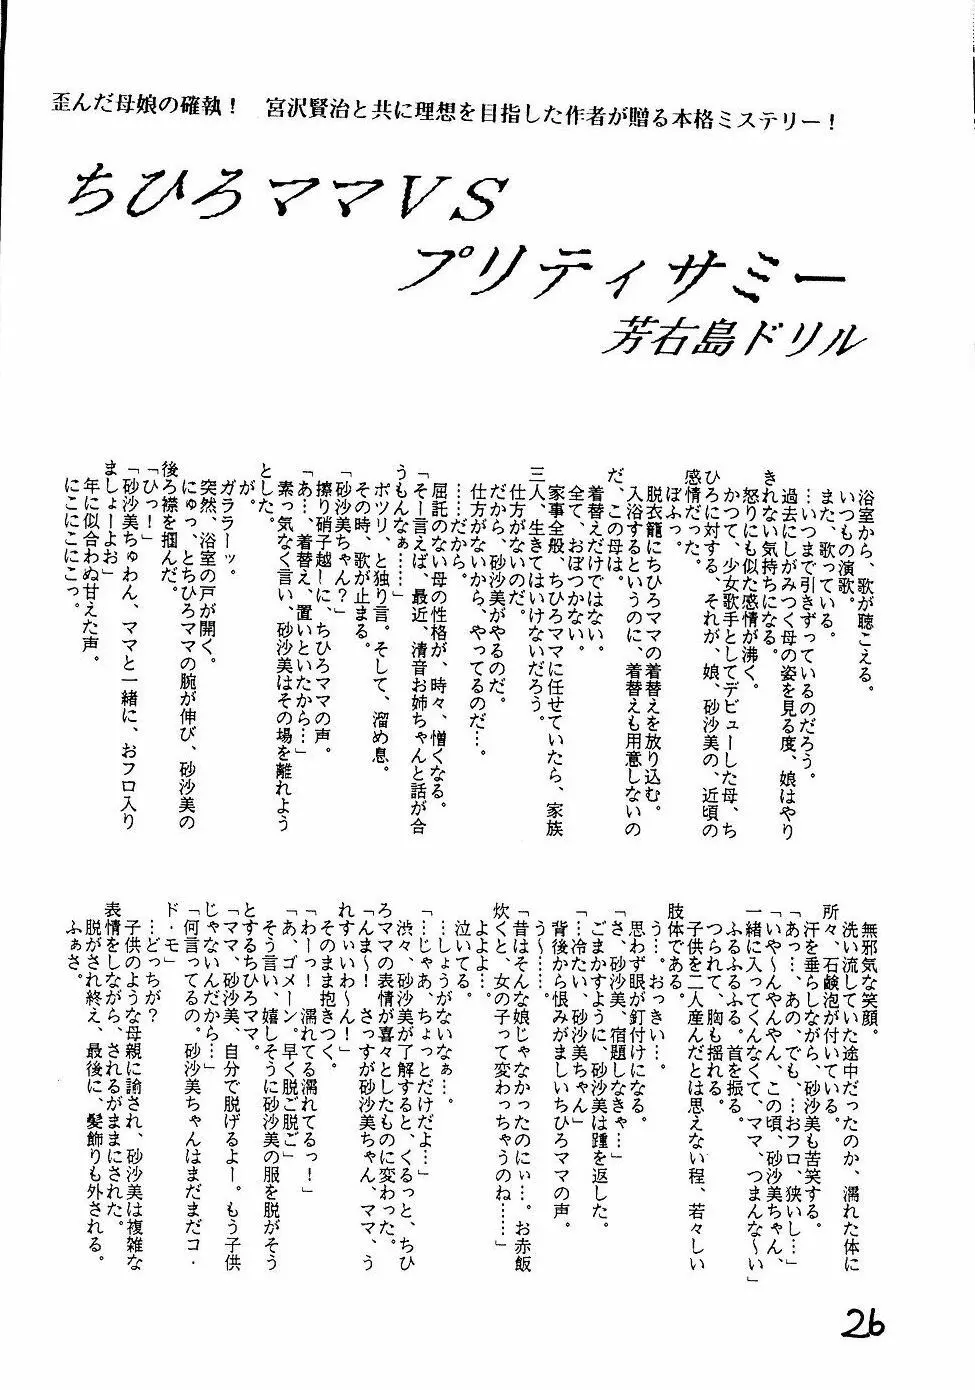 歪んだ母娘の確執！　宮沢賢治と共に理想を目指した作者が贈る本格ミステリー！
ちひろママVS
プリティサミー
芳右島ドリル
浴室から、歌が聴こえる。
いつもの演歌。
また、歌っている。
…いつまで引きずっているのだろう。
過去にしがみつく母の姿を見る度、娘はやり
きれない気持ちになる。
怒りにも似た感情が沸く。
かつて、少女歌手としてデビューした母、ち
ひろに対する、それが、娘、砂沙美の、近頃の
感情だった。
ぼふっ。
脱衣籠にちひろママの着替えを放り込む。
入浴するというのに、着替えも用意しないの
だ、この母は。
着替えだけではない。
全て、おぼつかない。
家事全般、ちひろママに任せていたら、家族
三人、生きてはいけないだろう。
仕方がないのだ。
だから、砂沙美がやるのだ。
仕方がないから、やってるのだ…。
……だから。
屈託のない母の性格が、時々、憎くなる。
「そー言えば、最近、清音お姉ちゃんと話が合
うもんなぁ……」
ポツリ、と独り言。そして、溜め息。
その時、歌が止まる。
「砂沙美ちゃん？」
擦り硝子越しに、ちひろママの声。
「あ…、着替え、置いといたから…」
素っ気なく言い、砂沙美はその場を離れよう
とした。
が。
ガララーッ。
突然、浴室の戸が開く。
にゅっ、とちひろママの腕が伸び、砂沙美の
後ろ襟を掴んだ。
「ひっ！」
「砂沙美ちゅわん、ママと一緒に、おフロ入り
ましょーよお」
年に似合わぬ甘えた声。
にこにこにこっ。
無邪気な笑顔。
洗い流していた途中だったのか、濡れた体に
所々、石鹸泡が付いている。
汗を垂らしながら、砂沙美も苦笑する。
「あっ…、あの、でも、…おフロ、狭いし…」
「いや～んやんやん、この頃、砂沙美ちゃん、
一緒に入ってくんなくて、ママ、つまんな～い」
ふるふるふる。首を振る。
つられて、胸も揺れる。
子供を二人産んだとは思えない程、若々しい
肢体である。
う…。おっきい…。
思わず眼が釘付けになる。
「さ、砂沙美、宿題しなきゃ…」
ごまかすように、砂沙美は踵を返した。
「…冷たい、砂沙美ちゃん」
背後から恨みがましいちひろママの声。
う～……。
「昔はそんな娘じゃなかったのにぃ…。お赤飯
炊くと、女の子って変わっちゃうのね……」
よよよ…。
泣いてる。
…しょうがないなぁ…。
「…じゃあ、ちょっとだけだよ…」
渋々、砂沙美が了解すると、くるっと、ちひ
ろママの表情が喜々としたものに変わった。
「んま～！　さっすが砂沙美ちゃん、ママ、う
れすぃいわ～ん！」
そのまま抱きつく。
「わーっ！　濡れてる濡れてるっ！」
「あ、ゴメーン。早く脱ご脱ご」
そう言い、嬉しそうに砂沙美の服を脱がそう
とするちひろママ。
「ママ、砂沙美、自分で脱げるよー。もう子供
じゃないんだから…」
「何言ってるの。砂沙美ちゃんはまだまだコ・
ド・モ」
…どっちが？
子供のような母親に諭され、砂沙美は複雑な
表情をしながら、されるがままにされた。
脱がされ終え、最後に、髪飾りも外される。
ふぁさ。
26